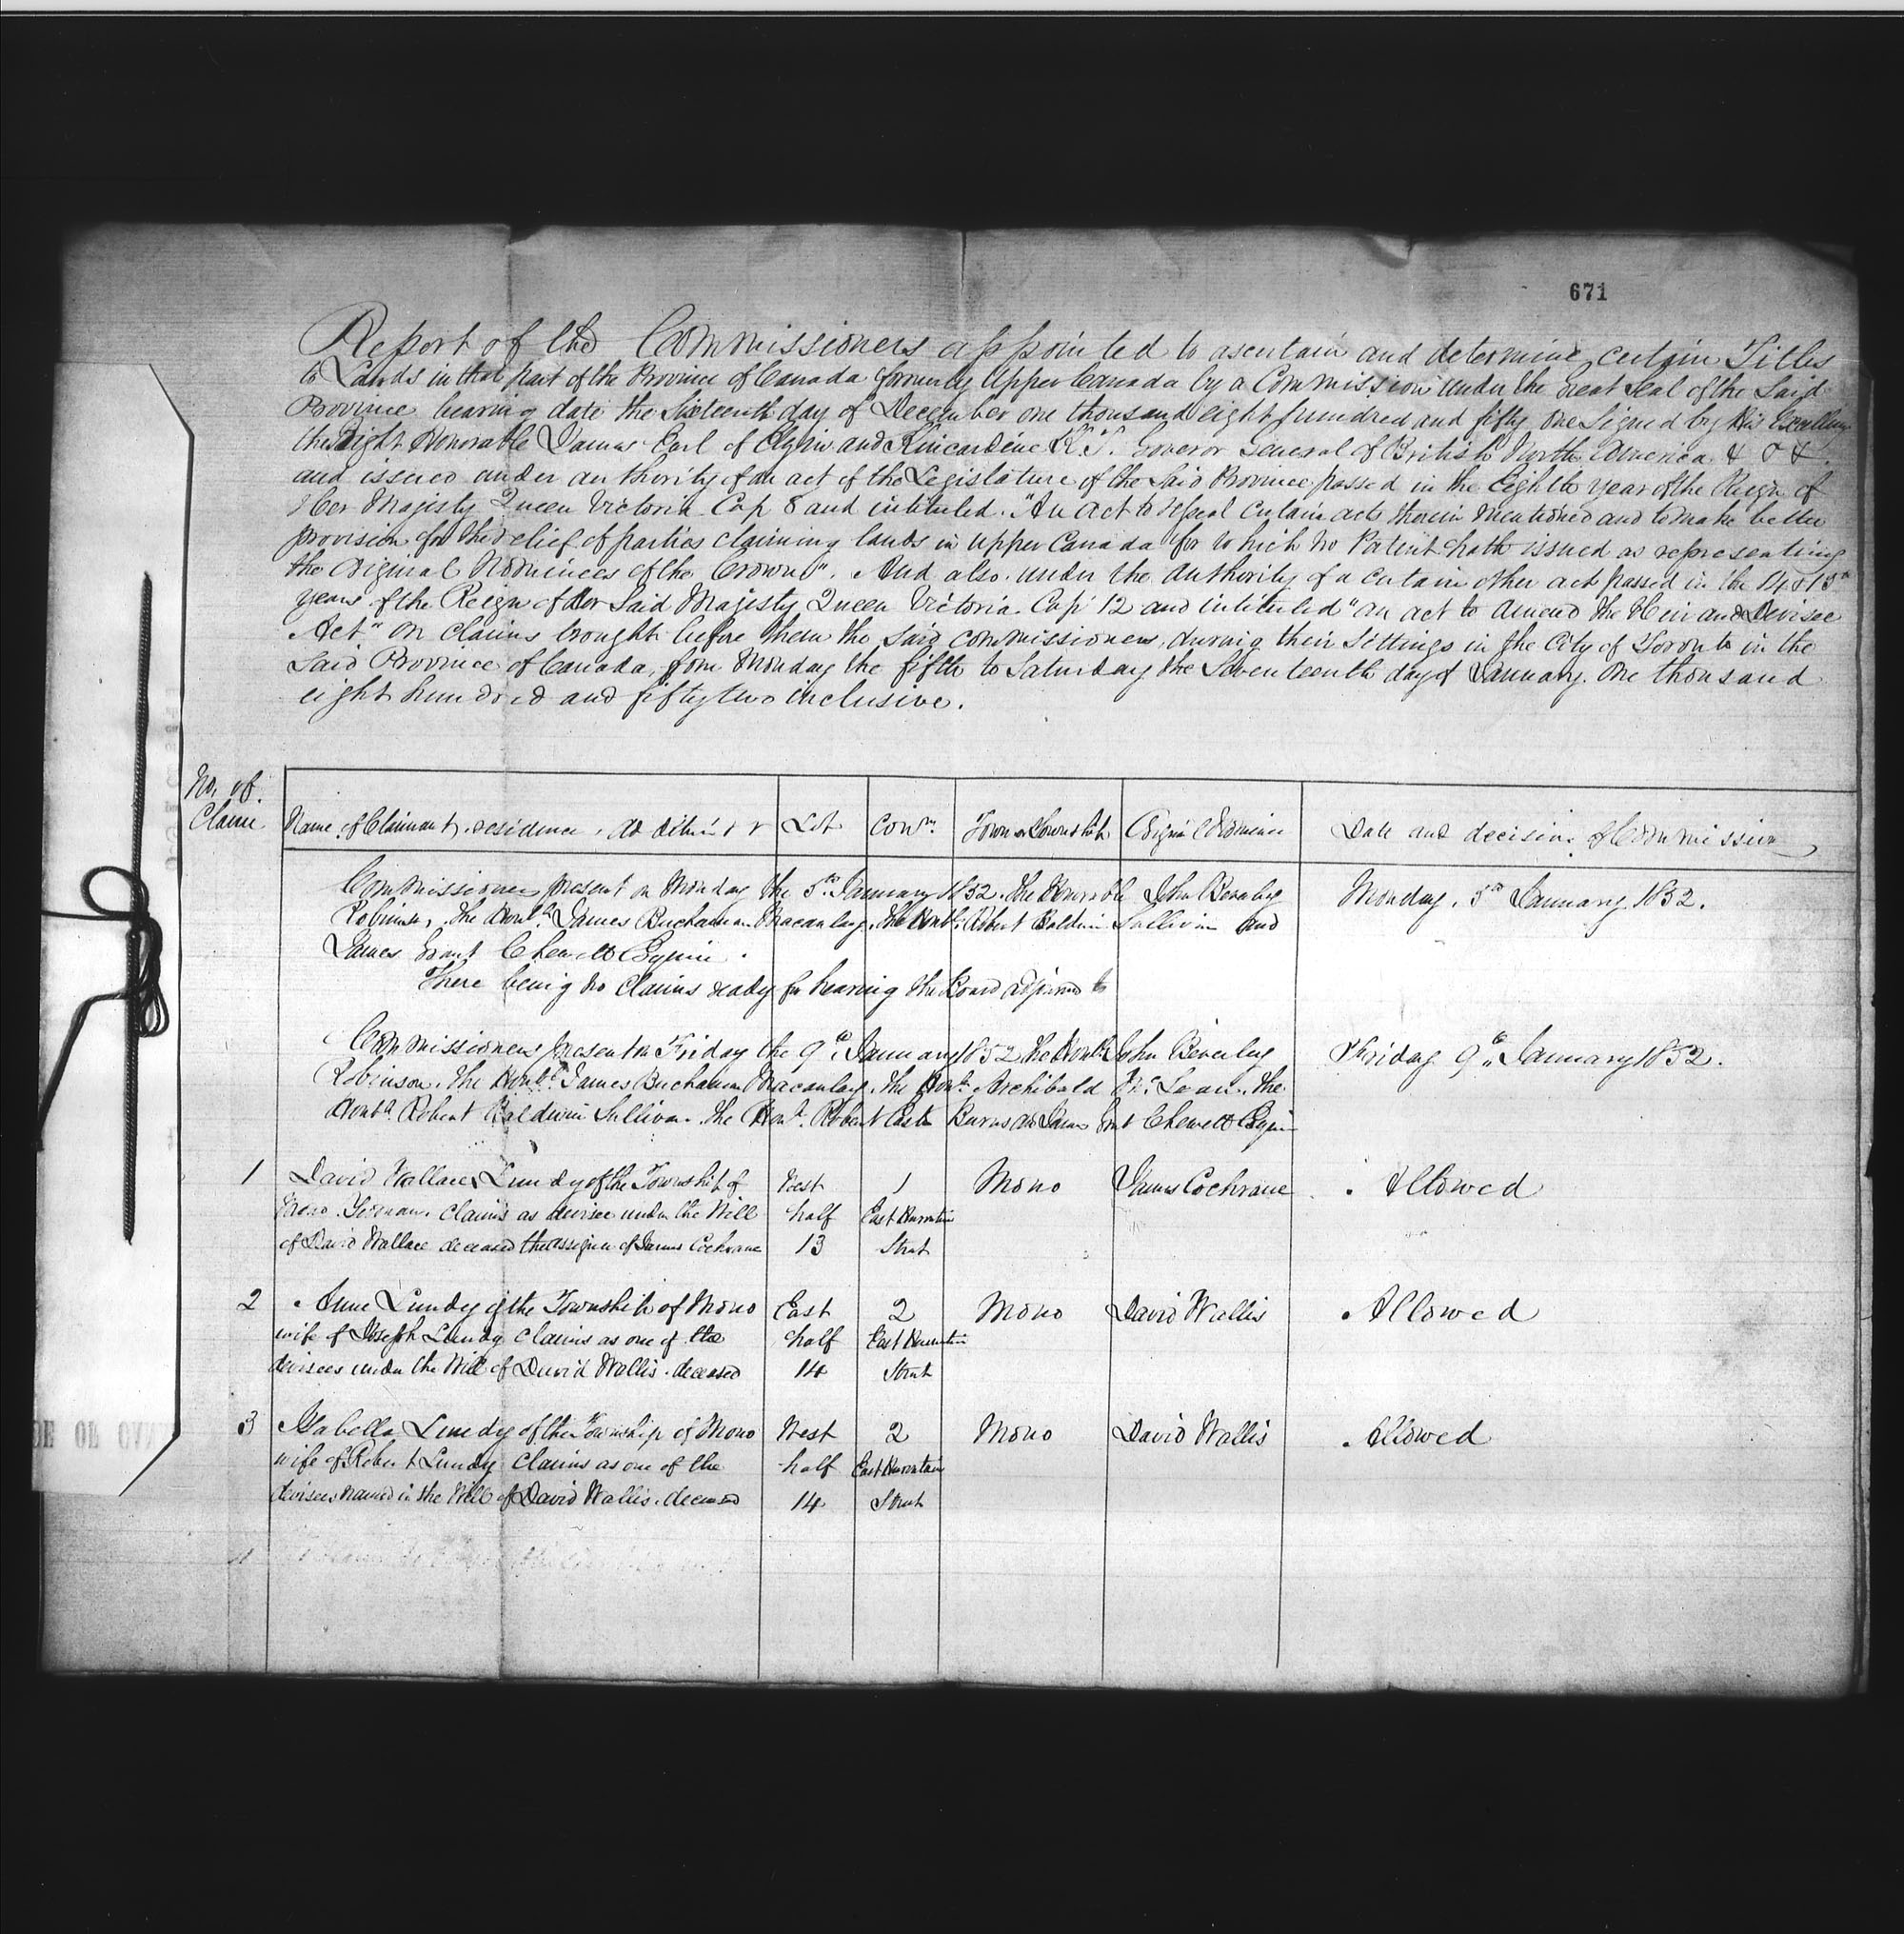 671
Report of the Commissioners appointed to ascertain and determine certain Titles
to Lands in that part of the Province of Canada formerly Upper Canada by a Commission under the Great Seal of the Said
Province bearing date the Sixteenth day of December one thousand eight hundred and fifty one Signed by His Excellency
the Right Honorable James Earl of Elgin and Kincardine K.T. Governor General of British North America & & &
and issued under authority of an act of the Legislature of the Said Province passed in the Eighth year of the Reign of
Her Majesty Queen Victoria Cap 8 and intituled "An Act to repeal certain acts therein mentioned and to make better
provision for the relief of parties claiming lands in Upper Canada for which no Patent hath issued as representing
the original Nominees of the Crown". And also under the authority of a certain other act passed in the 14 & 15th
years of the Reign of Her Said Majesty Queen Victoria. Cap 12 and intituled "an act to amend the Heir and Devisee
Act" on claims brought before them the said commissioners, during their Sittings in the City of Toronto in the
Said Province of Canada, from Monday the fifth to Saturday the Seventeenth day of January one thousand
eight hundred and fifty two inclusive.
No. of Claim
Name of Claimant, residence, addition &c
Lot
Conn.
Town or Township
Original Nominee
Date and decision of Commission
Commissioners present on Monday the 5th January 1852. The Honorable John Beverley
Robinson, the Honble. James Buchanan Macaulay, the Honble. Robert Baldwin Sullivan and
James Grant Chewett Esquire.
There being no claims ready for hearing the Board adjourned to
Monday, 5th January 1852.
Commissioners present on Friday the 9th January 1852 the Honble John Beverley
Robinson. the Honble. James Buchanan Macaulay. the Honble. Archibald McLean. the
Honble Robert Baldwin Sullivan. the Honble. Robert Easton Burns and James Grant Chewett Esquire
Friday 9th January 1852.
1 David Wallace Lundy of the Township of West 1 Mono James Cochrane . Allowed
Mono. Yeoman. claims as devisee under the Will half East Hurontario
of David Wallace deceased the assignee of James Cochrane 13 Street
2 Anne Lundy of the Township of Mono East 2 Mono David Wallis . Allowed
wife of Joseph Lundy claims as one of the half East Hurontario
devisees under the Will of David Wallis. deceased 14 Street
3 Isabella Lundy of the Township of Mono West 2 Mono David Wallis . Allowed
wife of Robert Lundy claims as one of the half East Hurontario
devisees named in the Will of David Wallis. deceased 14 Street